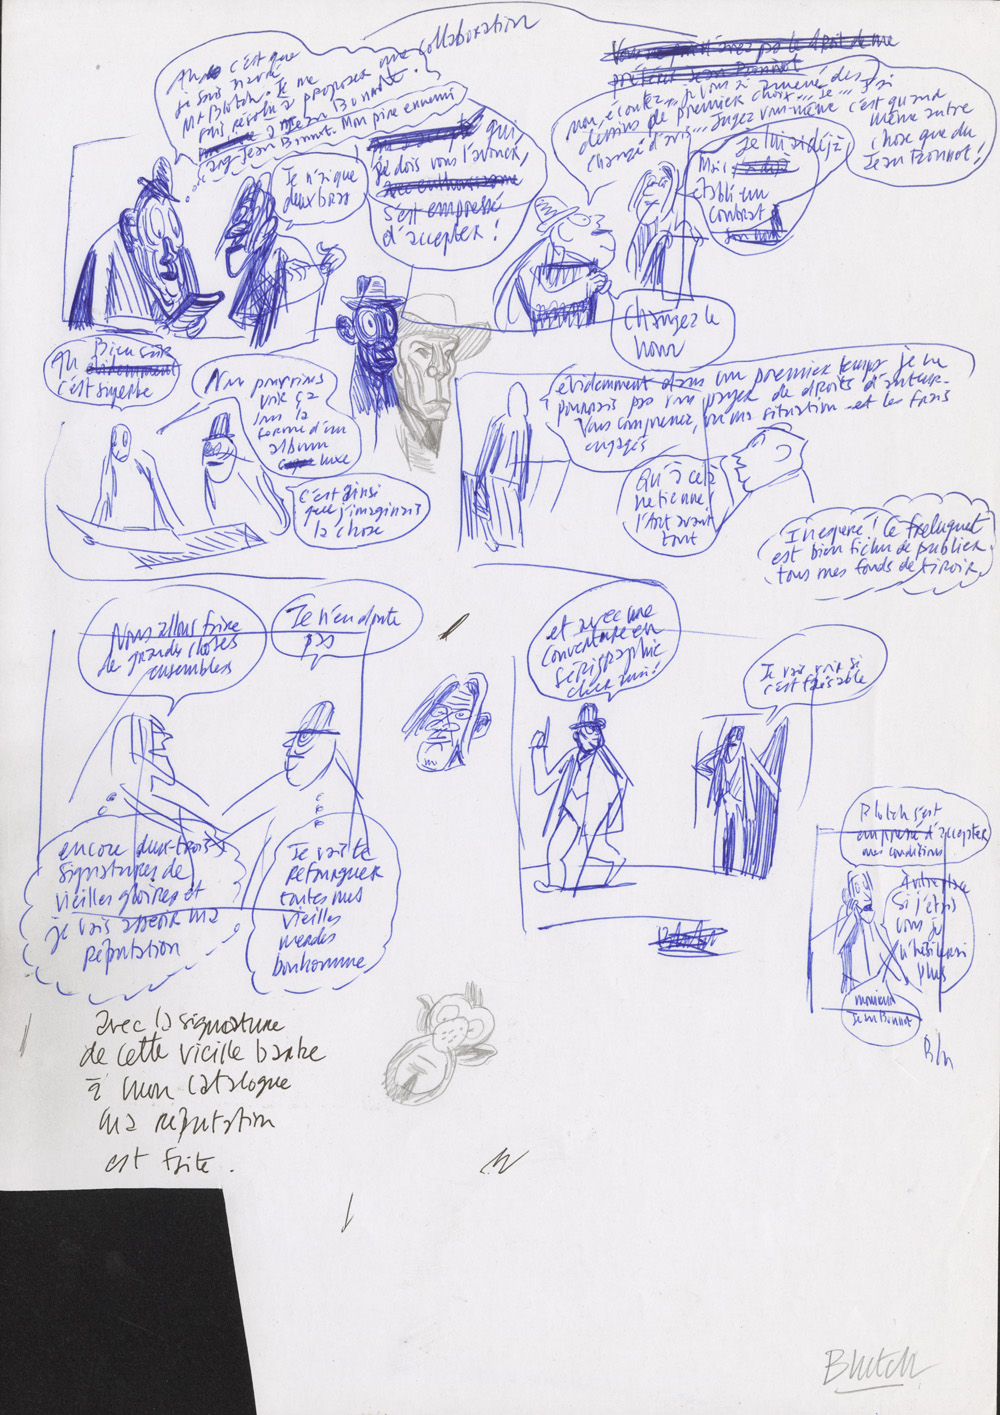 Ah c'est que
je suis navré
Mr Blotch. Je me
suis résolu à proposer une collaboration
à Jean Bonnot.
Jean Bonnot. Mon pire ennemi
Je n'ai que
deux bras
qui
je dois vous l'avouer,
avec enthousiasme
s'est empressé
d'accepter !
Vous n'avez pas le droit de me
préférer Jean Bonnot
Non, écoutez... je vous ai amené des
dessins de premier choix... Je... J'ai
changé d'avis... Jugez vous-même
c'est quand
même autre
chose que du
Jean Bonnot !
Je lui ai déjà
Mais
établi un
contrat
Changez le
nom
Ah Bien sûr
évidemment
c'est superbe
Nous pourrions
voir ça
sous la
forme d'un
album
luxe
C'est ainsi
que j'imaginais
la chose
évidemment dans un premier temps je ne
pourrais pas vous payer de droits d'auteur.
Vous comprenez, vu ma situation et les frais
engagés
Qu'à cela
ne tienne !
l'Art avant
tout
Inespéré ! Ce freluquet
est bien fichu de publier
tous mes fonds de tiroir.
Nous allons faire
de grandes choses
ensembles
Je n'en doute
pas
encore deux-trois
signatures de
vieilles gloires et
je vais asseoir ma
réputation
Je vais te
refourguer
toutes mes
vieilles
merdes
bonhomme
et avec une
couverture en
sérigraphie
cher ami !
Je vais voir si
c'est faisable
Blotch s'est
empressé d'accepter
mes conditions
Si j'étais
vous je
n'hésiterai
plus
monsieur
Jean Bonnot
Bln
avec la signature
de cette vieille barbe
à mon catalogue
ma réputation
est faite.
Blutch